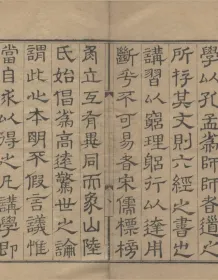 學以孔孟爲師師者道之
所存其文則六經之書也
講習以窮理躬行以達用
斷乎不可易者宋儒標榜
角立互有異同而象山陸
氏始倡爲高遠驚世之論
謂此心本明不假言議惟
當自求以得之凡講學即